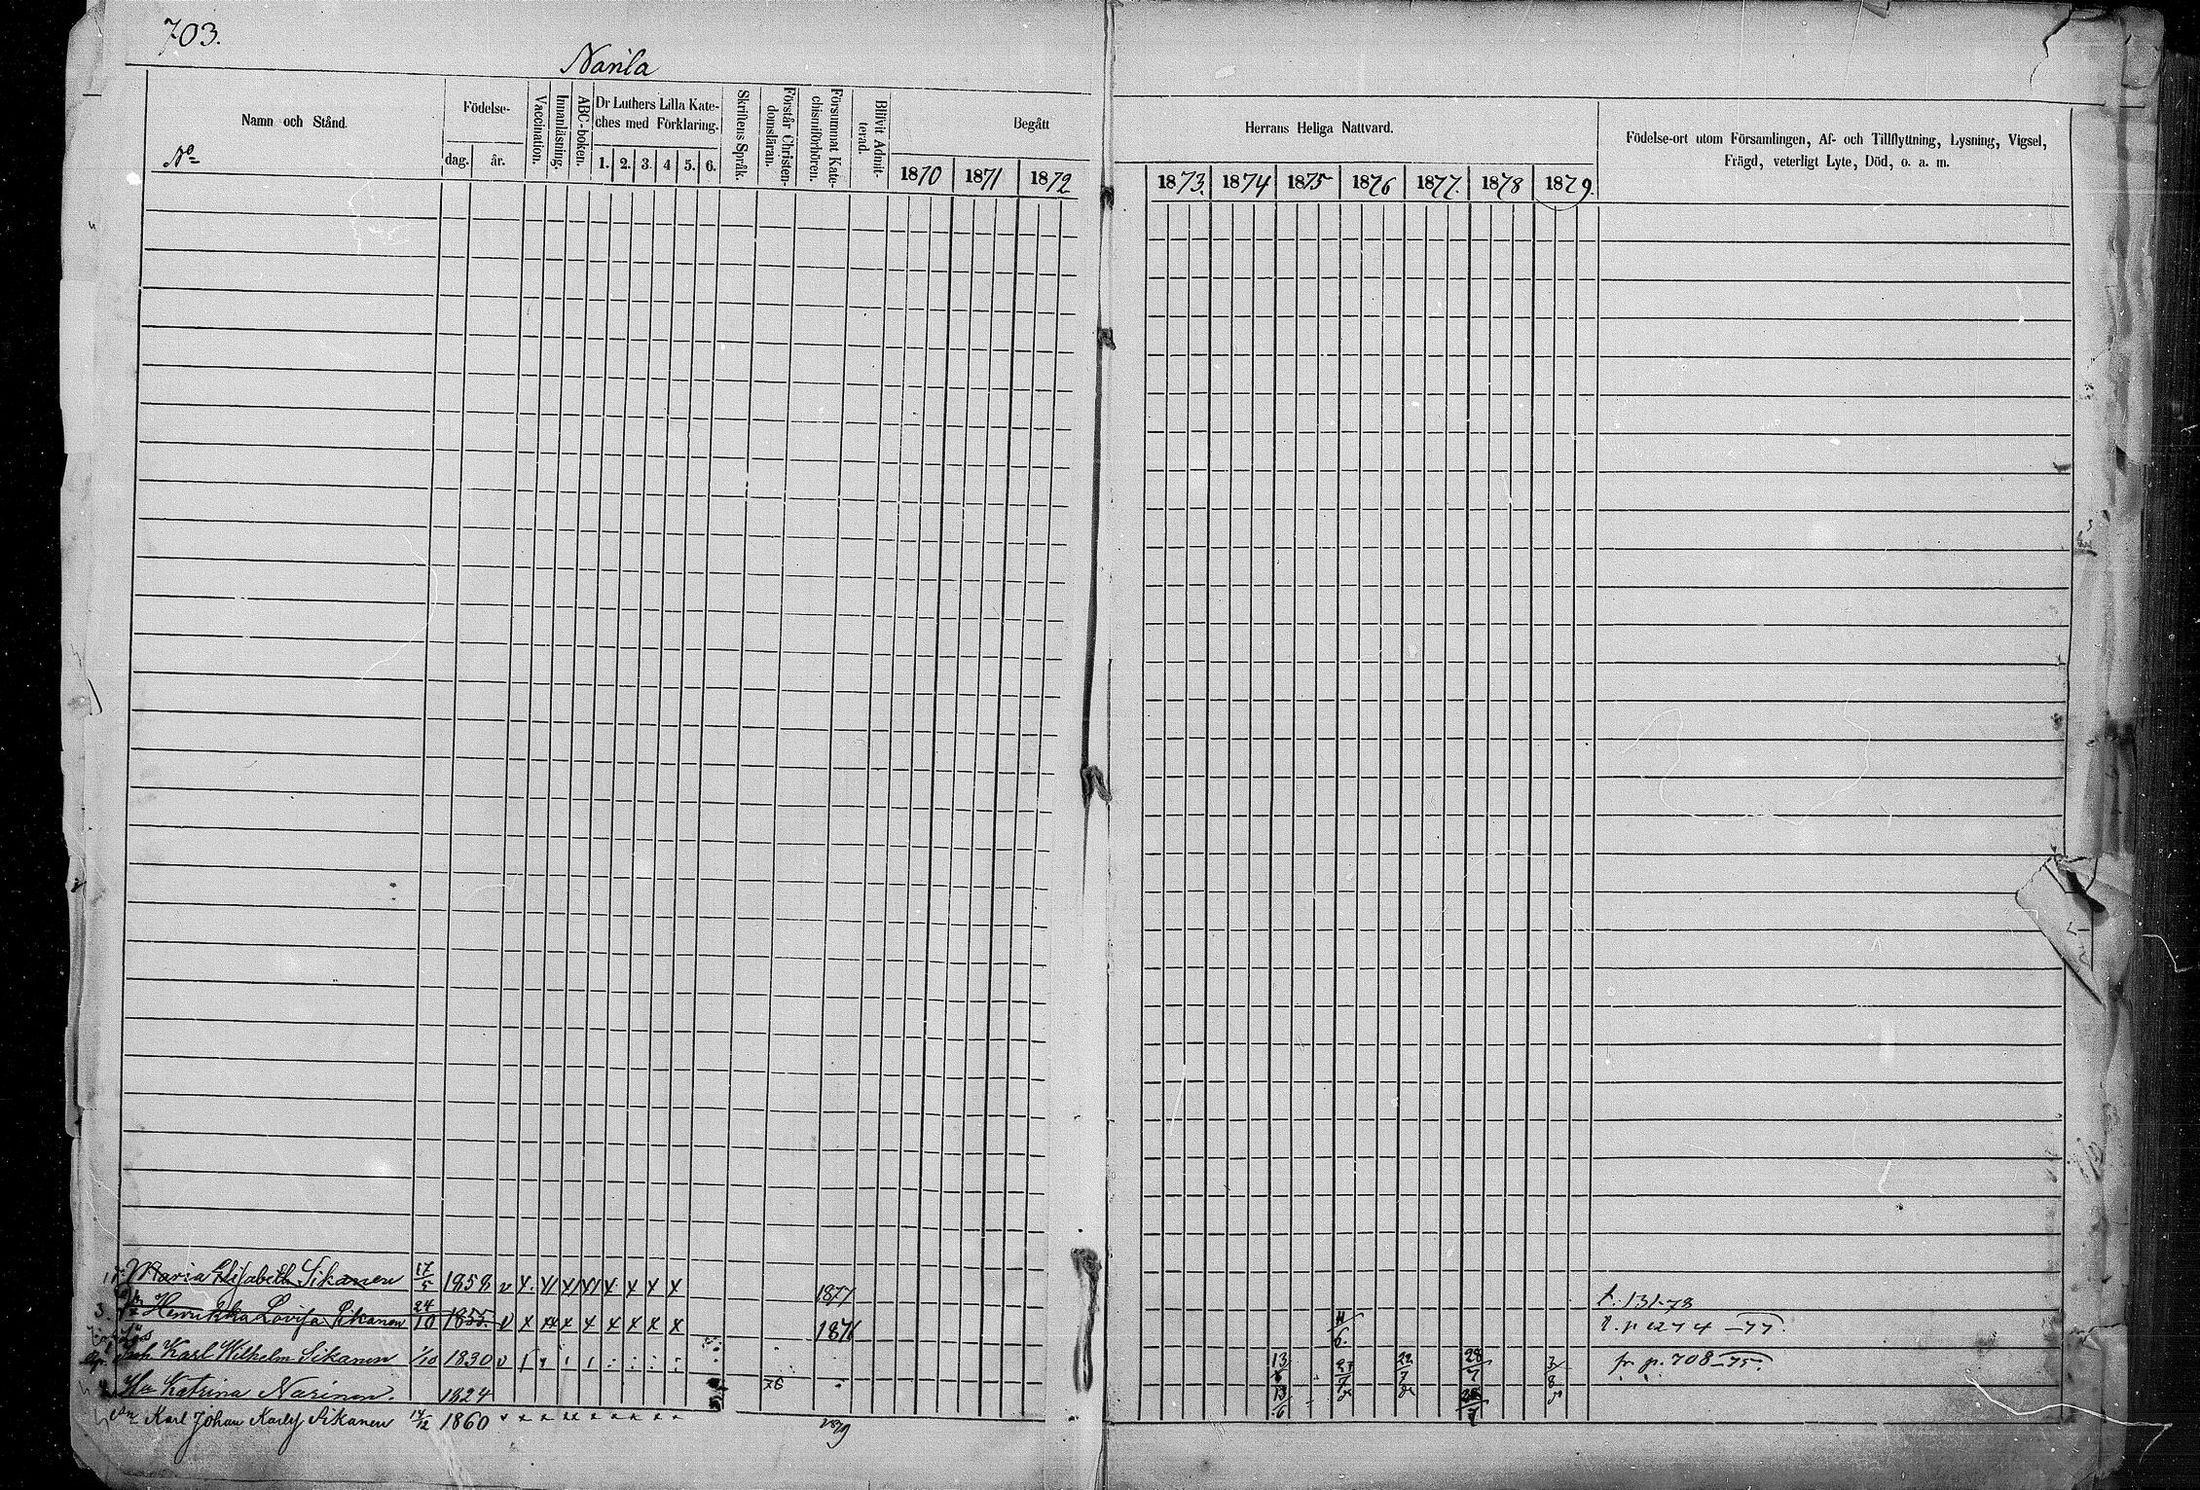 703.
Narila
Namn och Stånd.
No
Födelse-
dag. år.
Vaccination.
Innanläsning.
ABC-boken.
Dr Luthers Lilla Kate-
ches med Förklaring.
1. 2. 3. 4 5. 6.
Skriftens Språk.
Förstår Christen-
domsläran.
Försummat Kate-
chismiförhören.
Blifvit Admit-
terad.
Begått
1870 1871 1872
Herrans Heliga Nattvard.
1873. 1874 1875 1876 1877. 1878 1879.
Födelse-ort utom Församlingen, Af- och Tillflyttning, Lysning, Vigsel,
Frägd, veterligt Lyte, Död, o. a. m.
Maria Elisabeth Sikanen 17/5 1858 v x x x x x x 1877
t. 131-78
Henrikka Lovisa Sikanen 24/10 1855. v x x x x x x x 1876 11/6. 274-77.
Karl Wilhelm Sikanen 1/10 1830 v 13/6 22/7 28/7 3/8 fr. p. 708-75.
Katrina Narinen. 1824 13/6 28/7
Karl Johan Karls Sikanen 14/12 1860 1879